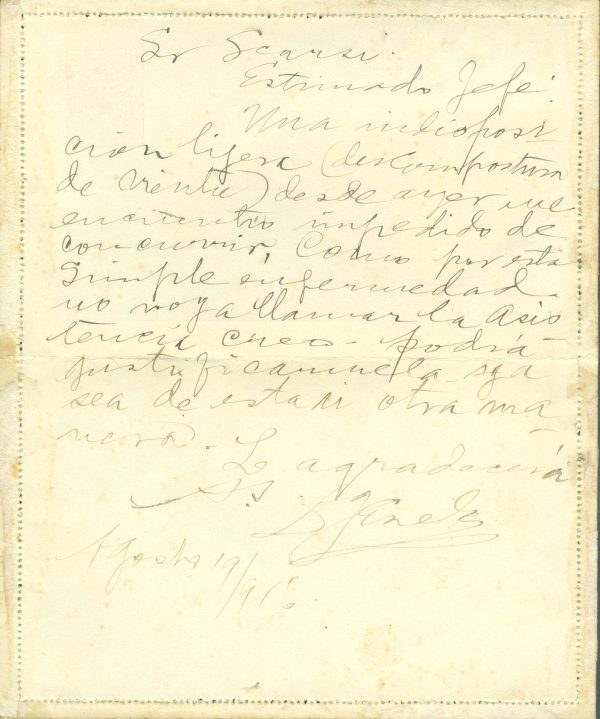 Sr Scarsi.
Estimado Jefe:
Una indisposi-
ción lijera (descompostura
de vientre) desde ayer me
encuentro impedido de
concurrir, Como por esta
simple enfermedad
no voy a llamar la Asis
tencia creo podrá
justificarmela ya
sea de esta u otra ma-
nera.
Le agradecerá
S.S.
Agosto 19/916.